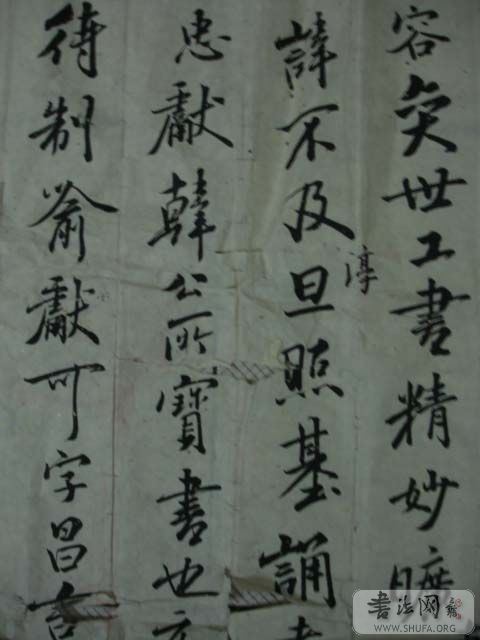 容奕世工書精妙曠
諱不及旦照基誦
淳
忠獻韓公所寶書也
待制俞獻可字昌言
書法网
WWW.SHUFA.ORG